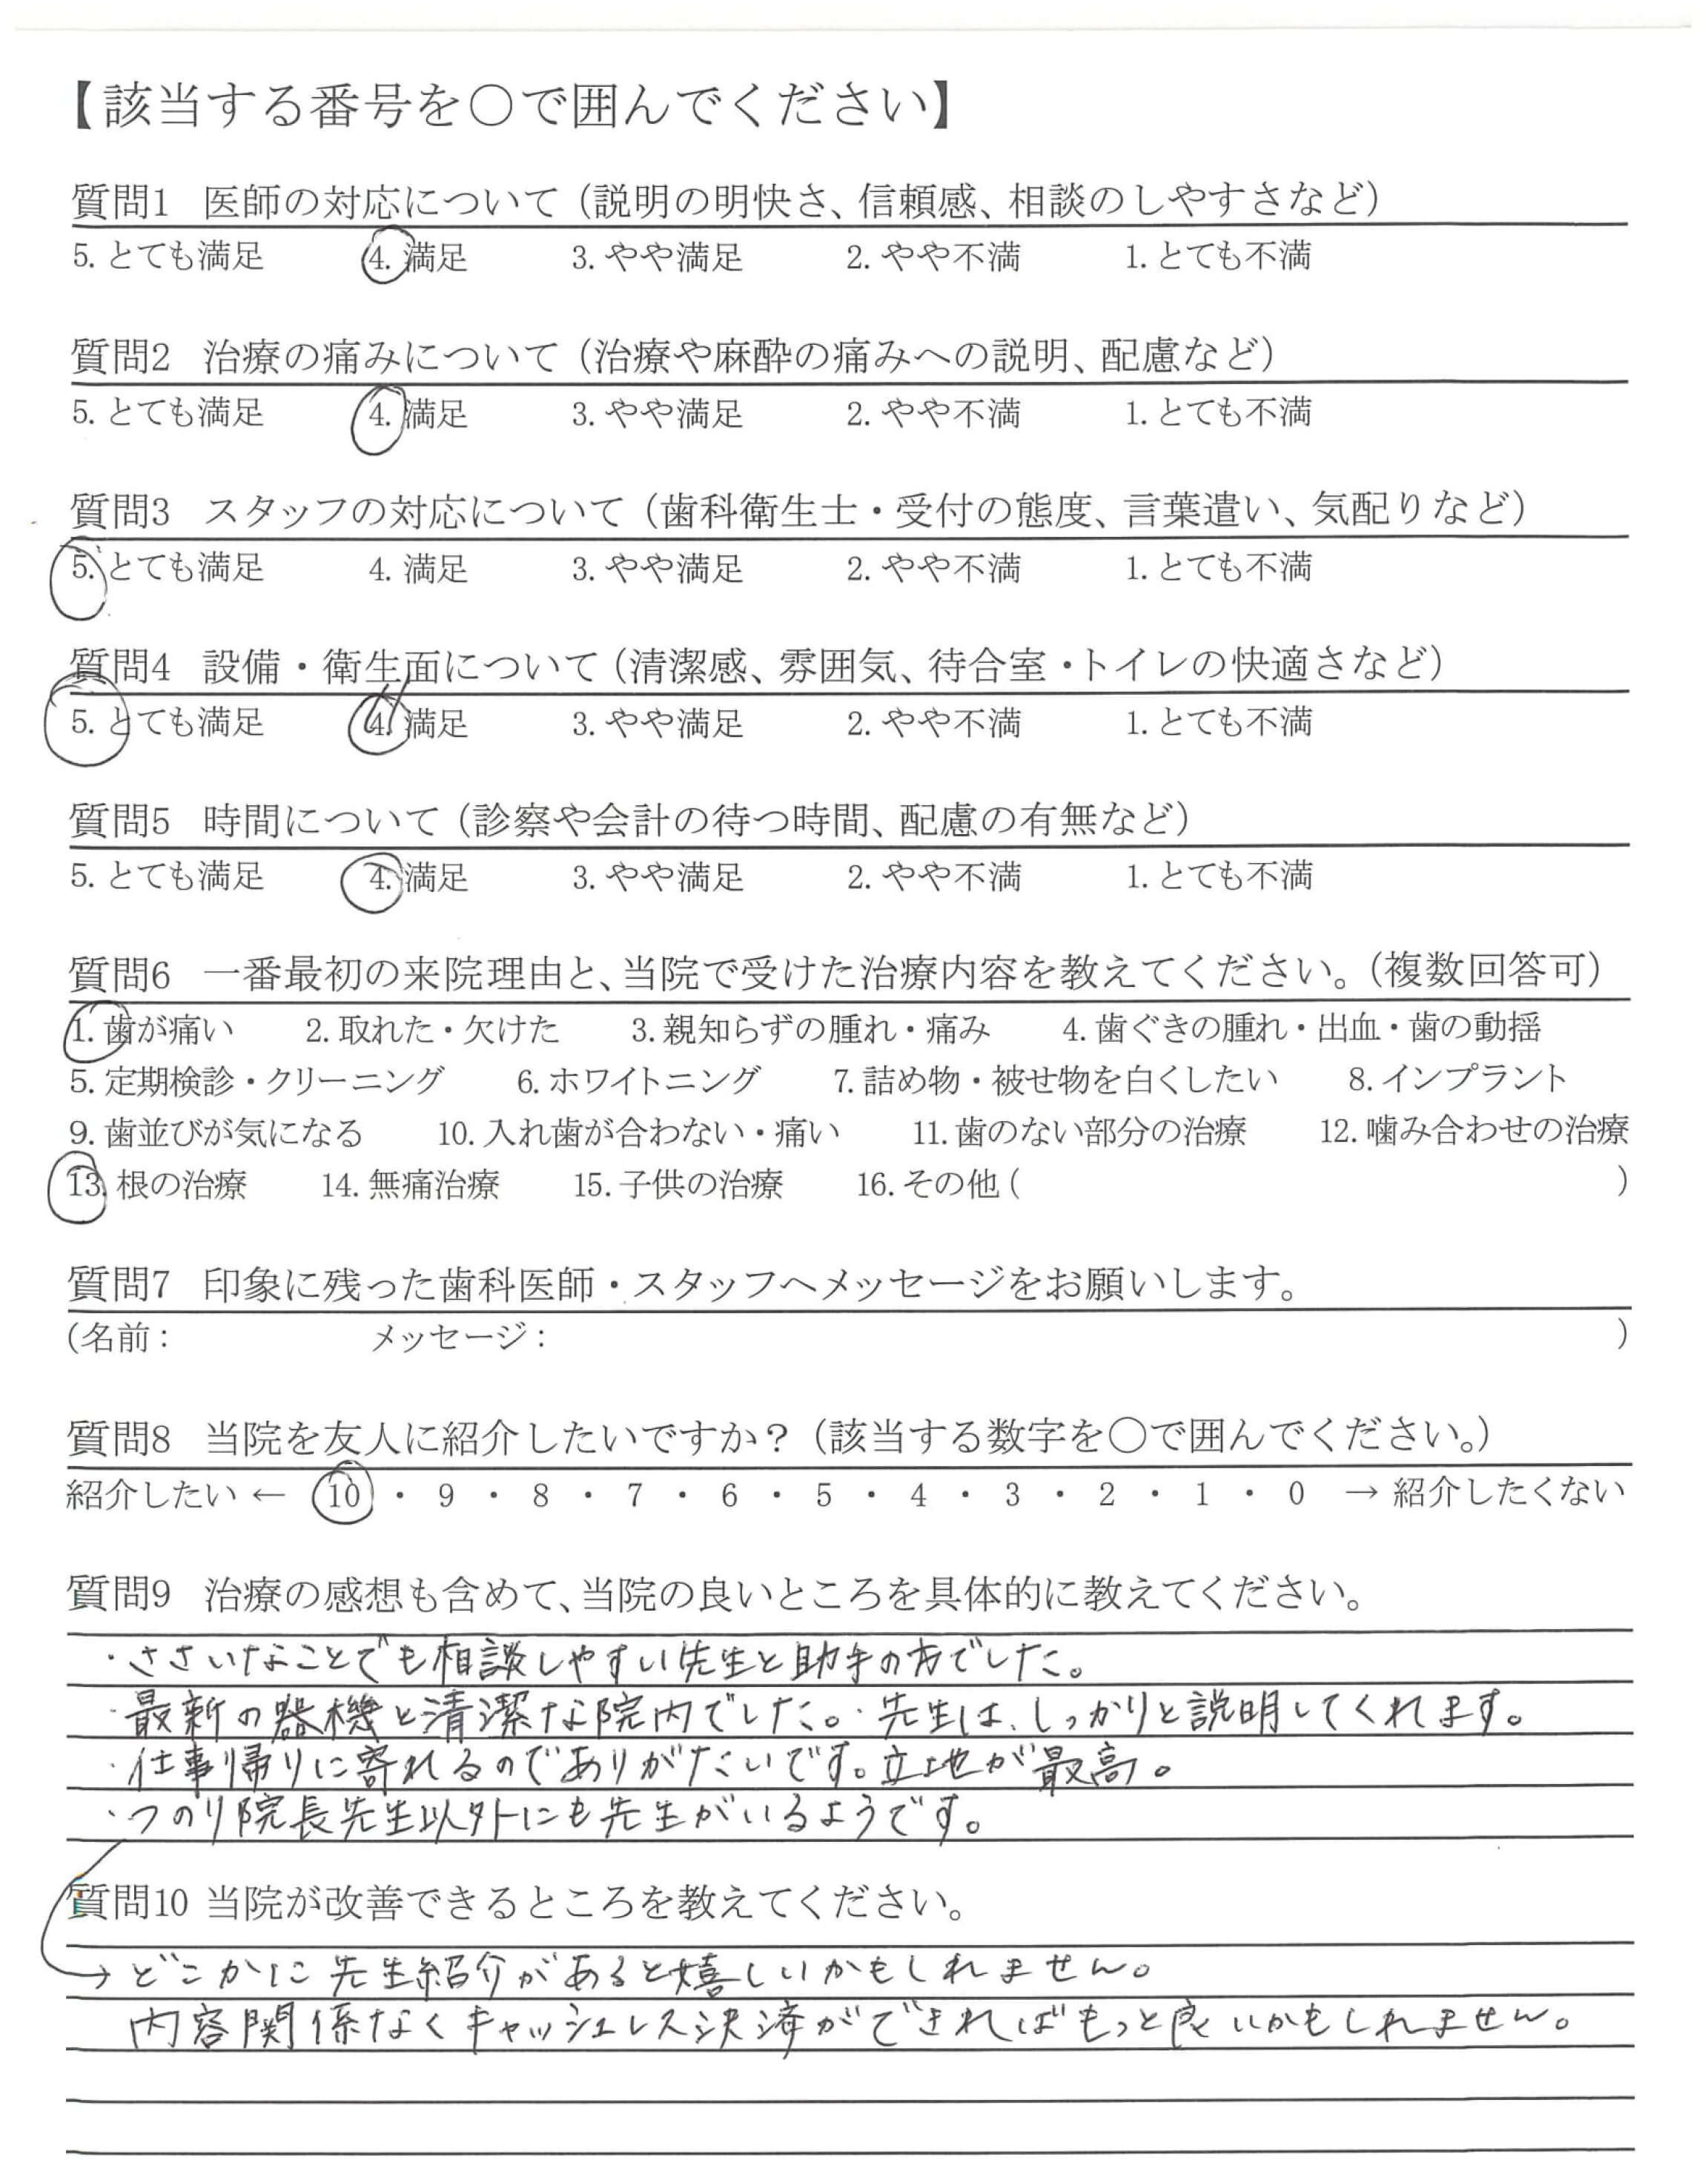 【該当する番号を○で囲んでください】
質問1 医師の対応について（説明の明快さ、信頼感、相談のしやすさなど）
5. とても満足 4. 満足 3. やや満足 2. やや不満 1. とても不満
質問2 治療の痛みについて（治療や麻酔の痛みへの説明、配慮など）
5. とても満足 4. 満足 3. やや満足 2. やや不満 1. とても不満
質問3 スタッフの対応について（歯科衛生士・受付の態度、言葉遣い、気配りなど）
5. とても満足 4. 満足 3. やや満足 2. やや不満 1. とても不満
質問4 設備・衛生面について（清潔感、雰囲気、待合室・トイレの快適さなど）
5. とても満足 4. 満足 3. やや満足 2. やや不満 1. とても不満
質問5 時間について（診察や会計の待つ時間、配慮の有無など）
5. とても満足 4. 満足 3. やや満足 2. やや不満 1. とても不満
質問6 一番最初の来院理由と、当院で受けた治療内容を教えてください。（複数回答可）
1. 歯が痛い 2. 取れた・欠けた 3. 親知らずの腫れ・痛み 4. 歯ぐきの腫れ・出血・歯の動揺
5. 定期検診・クリーニング 6. ホワイトニング 7. 詰め物・被せ物を白くしたい 8. インプラント
9. 歯並びが気になる 10. 入れ歯が合わない・痛い 11. 歯のない部分の治療 12. 噛み合わせの治療
13. 根の治療 14. 無痛治療 15. 子供の治療 16. その他（ ）
質問7 印象に残った歯科医師・スタッフへメッセージをお願いします。
（名前： メッセージ： ）
質問8 当院を友人に紹介したいですか？（該当する数字を○で囲んでください。）
紹介したい ← 10 ・ 9 ・ 8 ・ 7 ・ 6 ・ 5 ・ 4 ・ 3 ・ 2 ・ 1 ・ 0 → 紹介したくない
質問9 治療の感想も含めて、当院の良いところを具体的に教えてください。
・ささいなことでも相談しやすい先生と助手の方でした。
・最新の器機と清潔な院内でした。・先生は、しっかりと説明してくれます。
・仕事帰りに寄れるのでありがたいです。立地が最高。
・つのり院長先生以外にも先生がいるようです。
質問10 当院が改善できるところを教えてください。
→ どこかに先生紹介があると嬉しいかもしれません。
内容関係なくキャッシュレス決済ができればもっと良いかもしれません。